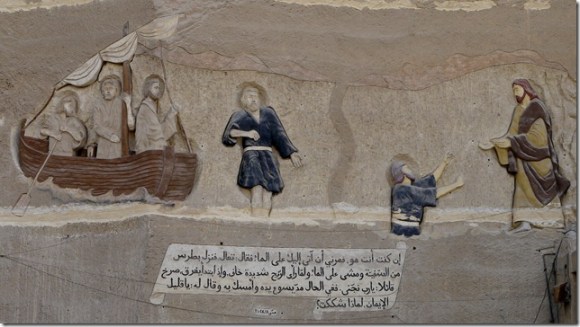 إن كنت أنت هو، فمرنى أن آتى إليك على الماء؛ فقال، تعال، فنزل بطرس
من السفينة ومشى على الماء؛ ولما رأى الريح شديدة خاف، وإذ ابتدأ يغرق، صرخ
قائلا: يارب نجنى، ففى الحال مدّ يسوع يده وأمسك به وقال له، ياقليل
الإيمان، لماذا شككت؟
متى